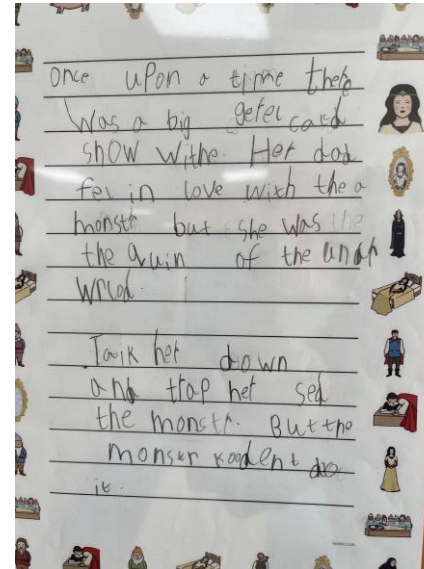 Once upon a time there
was a big geter card
show withe. Her dad
fel in love with the a
monstr but she was the
the quin of the undr
wrlod.
Taik her down
and trap her sed
the monstr. But the
monster koodent do
it.